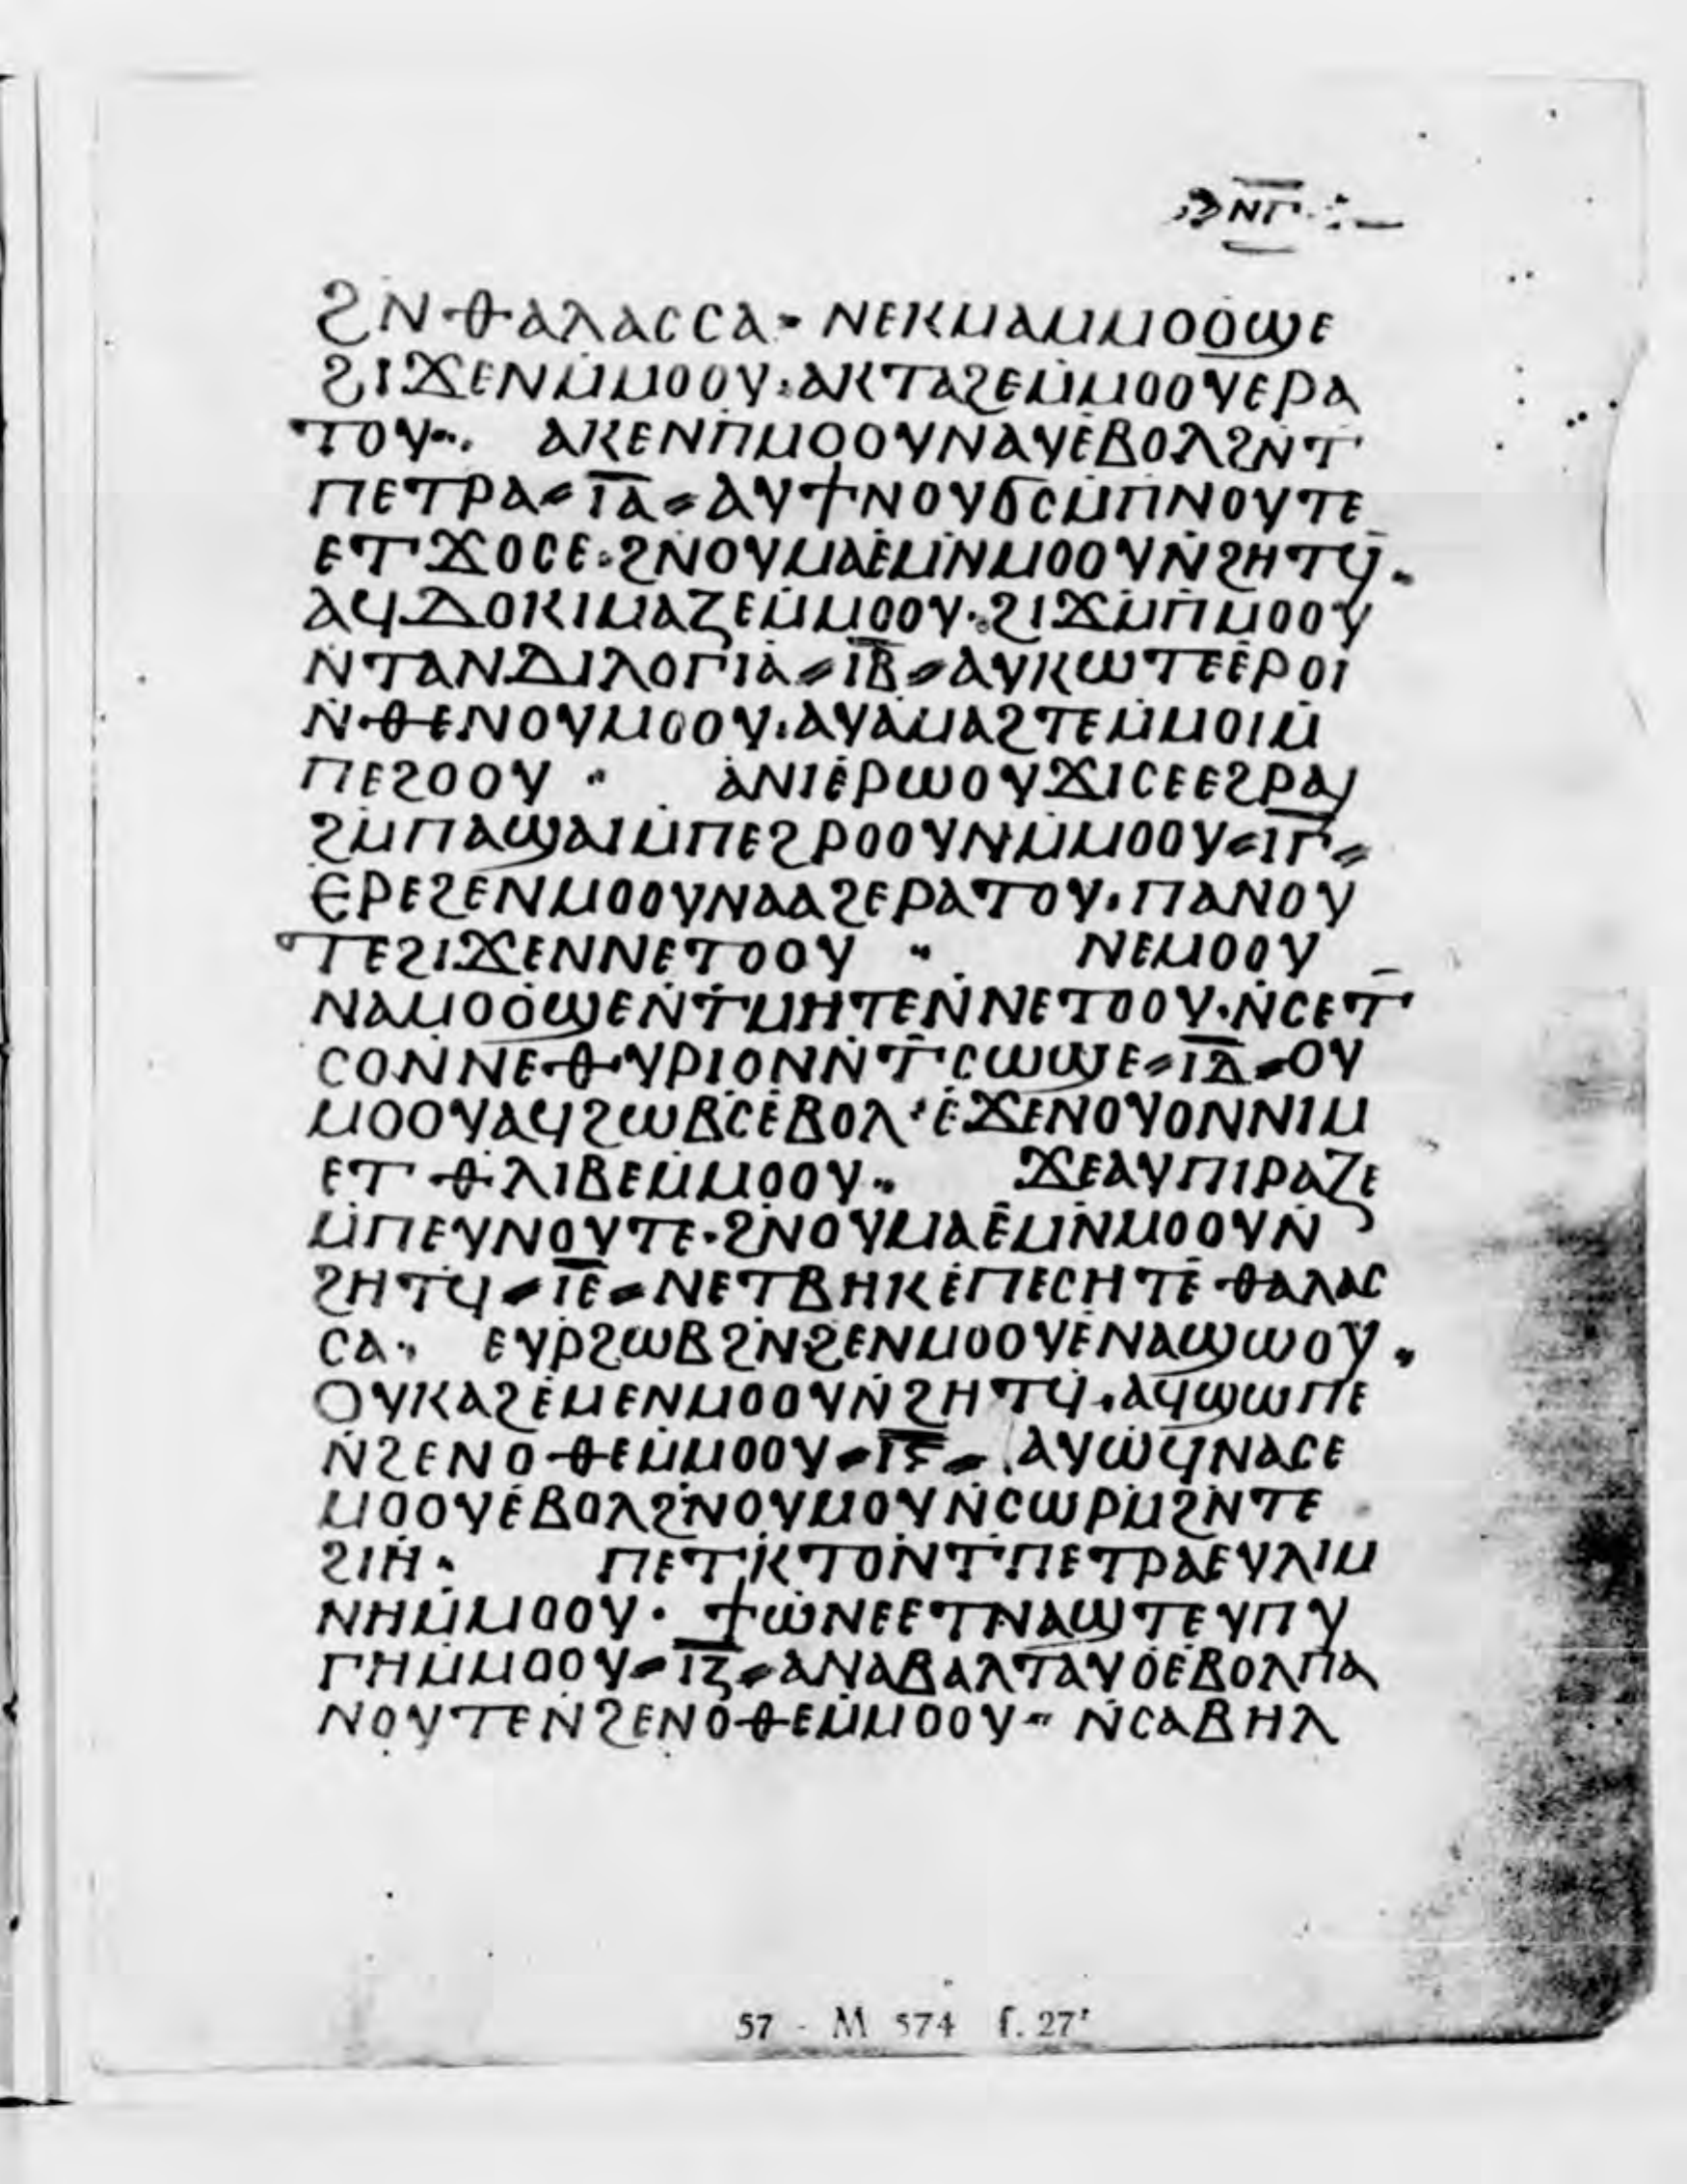 ⲛⲅ
ϩⲛⲑⲁⲗⲁⲥⲥⲁ · ⲛⲉⲕⲙⲁⲙⲙⲟⲟϣⲉ
ϩⲓϫⲉⲛⲙ̇ⲙⲟⲟⲩ · ⲁⲕⲧⲁϩⲉⲙ̇ⲙⲟⲟⲩⲉⲣⲁ
ⲧⲟⲩ · ⲁⲕⲉⲛⲡⲙⲟⲟⲩⲛⲁⲩⲉ̇ⲃⲟⲗϩⲛ̇ⲧ
ⲡⲉⲧⲣⲁ = ⲓ̅ⲁ̅ = ⲁⲩϯⲛⲟⲩϭⲥⲙ̇ⲡⲛⲟⲩⲧⲉ
ⲉⲧϫⲟⲥⲉ · ϩⲛ̇ⲟⲩⲙⲁⲉ̇ⲓⲛ̇ⲙⲟⲟⲩⲛ̇ϩⲏⲧϥ̇ ·
ⲁϥⲇⲟⲕⲓⲙⲁⲍⲉⲙ̇ⲙⲟⲟⲩ · ϩⲓϫⲙ̇ⲡⲙⲟⲟⲩ
ⲛ̇ⲧⲁⲛⲇⲓⲗⲟⲅⲓⲁ = ⲓ̅ⲃ̅ = ⲁⲩⲕⲱⲧⲉⲉ̇ⲣⲟⲓ
ⲛ̇ⲑⲉⲛⲟⲩⲙⲟⲟⲩ · ⲁⲩⲁ̇ⲙⲁϩⲧⲉⲙ̇ⲙⲟⲓⲙ̇
ⲡⲉϩⲟⲟⲩ · ⲁ̇ⲛⲓⲉ̇ⲣⲱⲟⲩϫⲓⲥⲉⲉϩⲣⲁⲓ
ϩⲙⲡⲁϣⲁⲓⲙ̇ⲡⲉϩⲣⲟⲟⲩⲛⲙ̇ⲙⲟⲟⲩ = ⲓ̅ⲅ̅ =
ⲉⲣⲉϩⲉⲛⲙⲟⲟⲩⲛⲁⲁϩⲉⲣⲁⲧⲟⲩ · ⲡⲁⲛⲟⲩ
ⲧⲉϩⲓϫⲉⲛⲛⲉⲧⲟⲟⲩ · ⲛⲉⲙⲟⲟⲩ
ⲛⲁⲙⲟⲟϣⲉⲛ̇ⲧ̇ⲙⲏⲧⲉⲛ̇ⲛⲉⲧⲟⲟⲩ · ⲛ̇ⲥⲉⲧ
ⲥⲟⲛ̇ⲛⲉⲑⲩⲣⲓⲟⲛⲛ̇ⲧ̇ⲥⲱϣⲉ = ⲓ̅ⲇ̅ = ⲟⲩ
ⲙⲟⲟⲩⲁϥϩⲱⲃⲥⲉ̇ⲃⲟⲗ · ⲉ̇ϫⲉⲛⲟⲩⲟⲛⲛⲓⲙ
ⲉⲧⲑⲗⲓⲃⲉⲙ̇ⲙⲟⲟⲩ · ϫⲉⲁⲩⲡⲓⲣⲁⲍⲉ
ⲙ̇ⲡⲉⲩⲛⲟⲩⲧⲉ · ϩⲛⲟⲩⲙⲁⲉ̇ⲓⲛ̇ⲙⲟⲟⲩⲛ̇
ϩⲏⲧϥ̇ = ⲓ̅ⲉ̅ = ⲛⲉⲧⲃⲏⲕⲉ̇ⲡⲉⲥⲏⲧⲉ̇ⲑⲁⲗⲁⲥ
ⲥⲁ · ⲉⲩⲣϩⲱⲃϩⲛ̇ϩⲉⲛⲙⲟⲟⲩⲉ̇ⲛⲁϣⲱⲟⲩ ·
ⲟⲩⲕⲁϩⲉ̇ⲙⲉⲛⲙⲟⲟⲩⲛ̇ϩⲏⲧϥ̇ · ⲁϥϣⲱⲡⲉ
ⲛ̇ϩⲉⲛⲟⲑⲉⲙ̇ⲙⲟⲟⲩ = ⲓ̅ⲋ̅ = ⲁⲩⲱ̇ϥⲛⲁⲥⲉ
ⲙⲟⲟⲩⲉ̇ⲃⲟⲗϩⲛ̇ⲟⲩⲙⲟⲩⲛ̇ⲥⲱⲣⲙ̇ϩⲛⲧⲉ
ϩⲓⲏ · ⲡⲉⲧⲕⲧⲟⲛ̇ⲧⲡⲉⲧⲣⲁⲉⲩⲗⲓⲙ
ⲛⲏⲙ̇ⲙⲟⲟⲩ · ϯⲱ̇ⲛⲉⲉⲧⲛⲁϣⲧⲉⲩⲡⲩ
ⲅⲏⲙ̇ⲙⲟⲟⲩ = ⲓ̅ⲍ̅ = ⲁⲛⲁⲃⲁⲗⲧⲁⲩⲟⲉ̇ⲃⲟⲗⲡⲁ
ⲛⲟⲩⲧⲉⲛ̇ϩⲉⲛⲟ̇ⲑⲉⲙ̇ⲙⲟⲟⲩ · ⲛ̇ⲥⲁⲃⲏⲗ
57 - M 574 f. 27ʳ